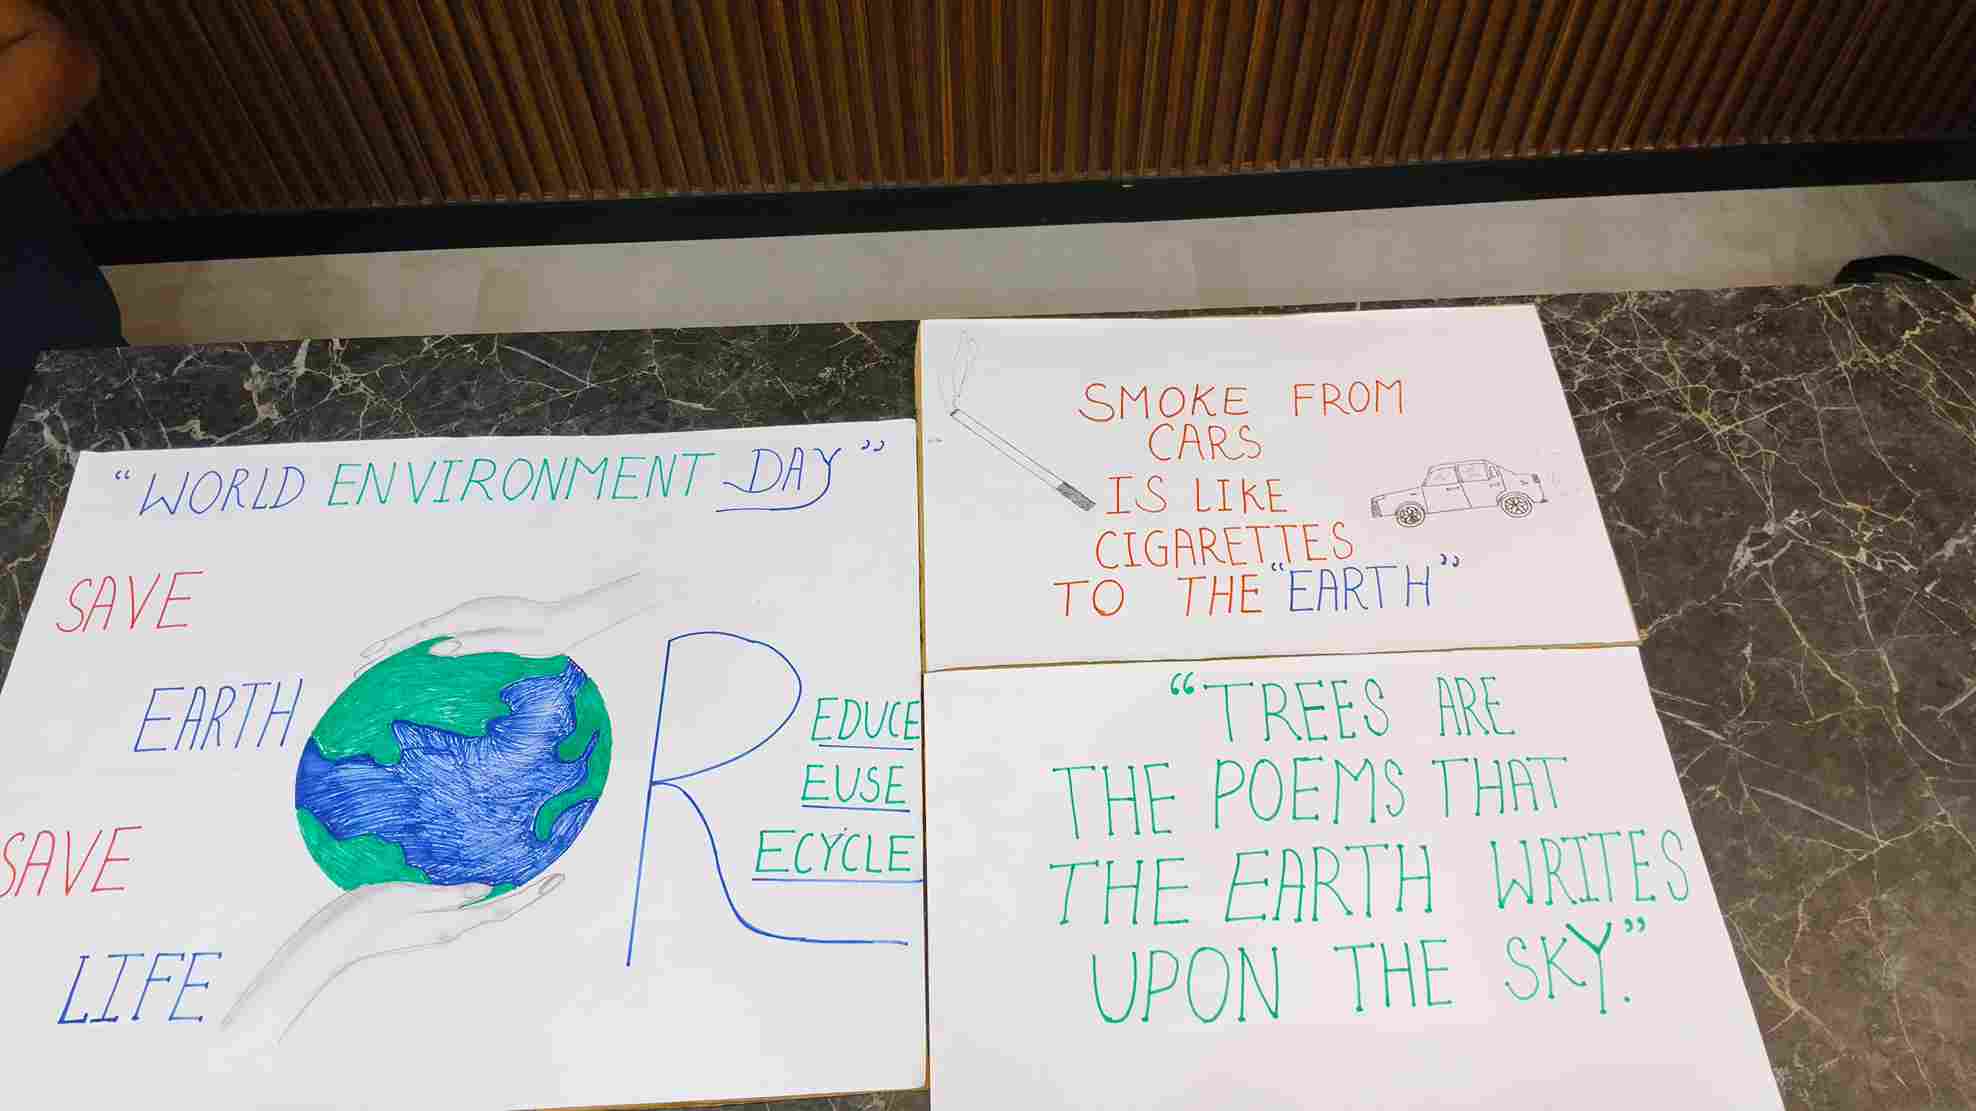 "WORLD ENVIRONMENT DAY"
SAVE
EARTH
SAVE
LIFE
R
EDUCE
EUSE
ECYCLE
SMOKE FROM
CARS
IS LIKE
CIGARETTES
TO THE "EARTH"
"TREES ARE
THE POEMS THAT
THE EARTH WRITES
UPON THE SKY."